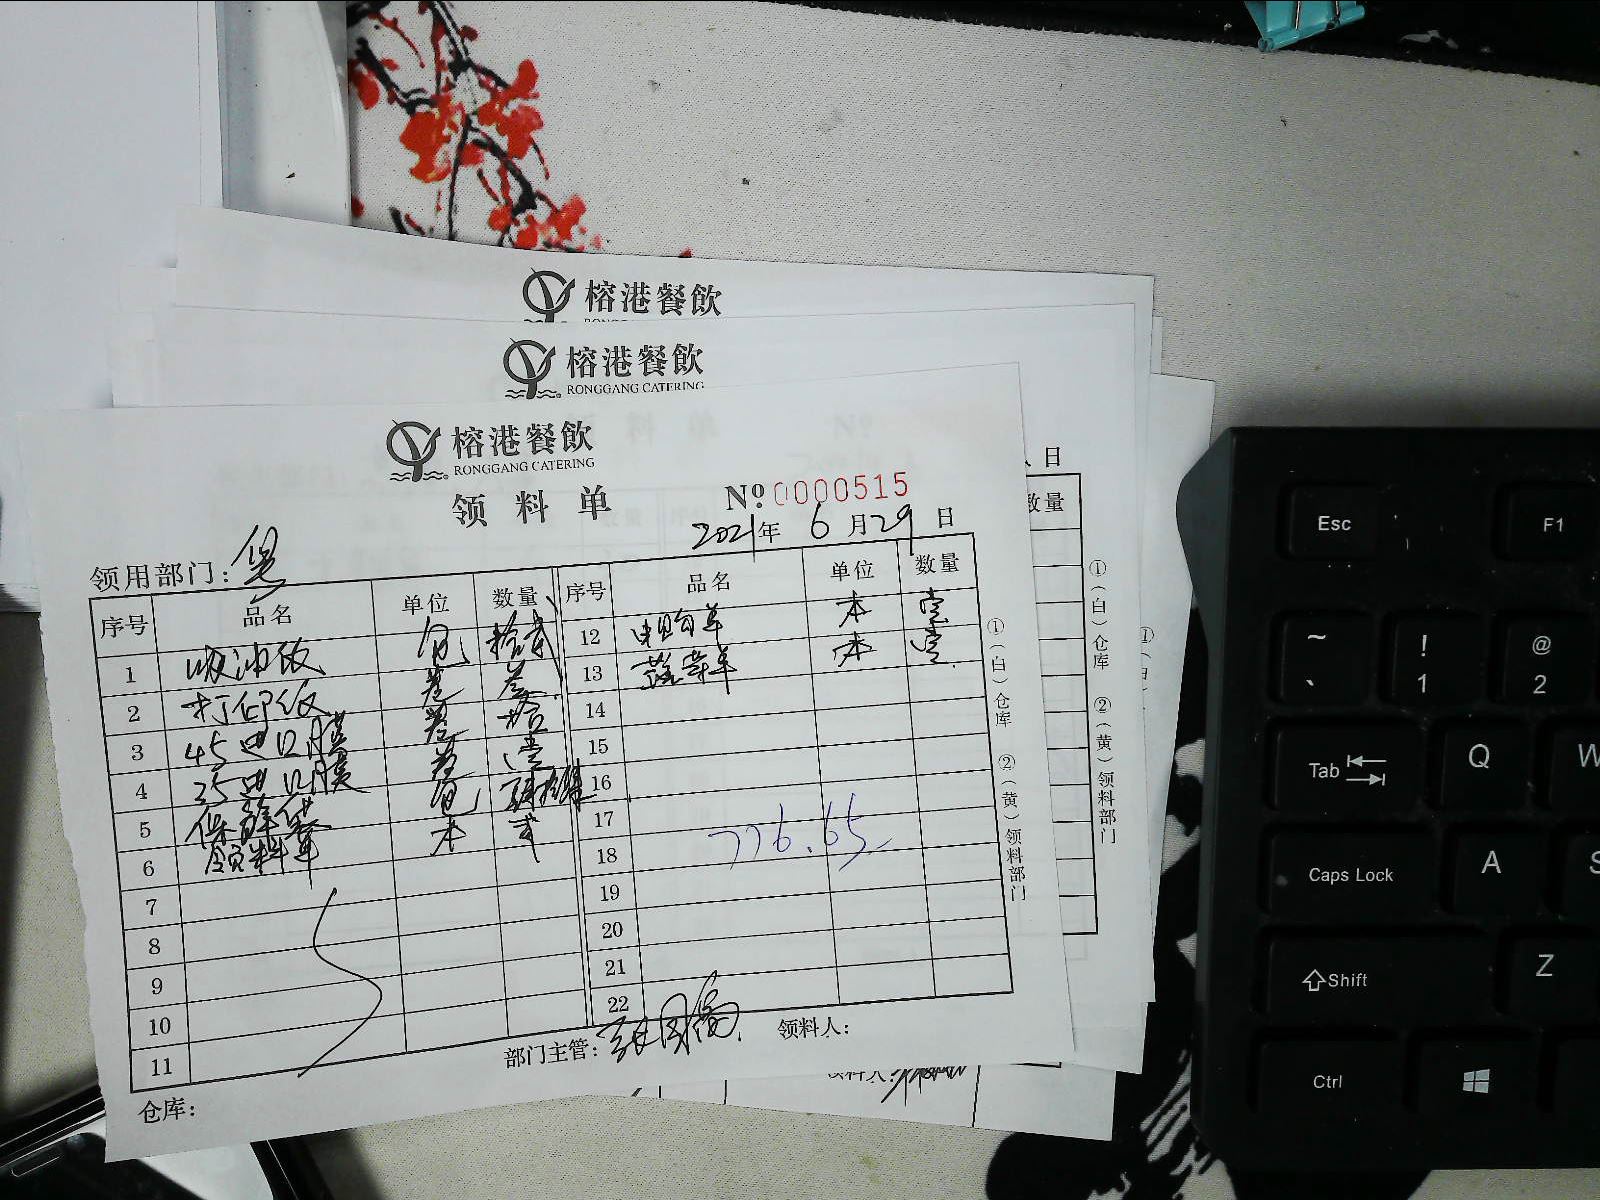 榕港餐飲
榕港餐飲
RONGGANG CATERING
榕港餐飲
RONGGANG CATERING
领料单
№ 0000515
2021年 6月29日
领用部门: 煲
序号 品名 单位 数量 序号 品名 单位 数量
1 吸油纸 包 拾贰 12 申购单 本 壹
2 打印纸 卷 叁 13 蔬菜单 本 壹
3 45 口膜 卷 拾 14
4 35 口膜 卷 壹 15
5 保鲜袋 包 16
6 领料单 本 贰 17
7 18
8 19
9 20
10 21
11 22
776.65
部门主管: 领料人:
仓库:
①(白)仓库 ②(黄)领料部门
日
数量
①(白)仓库 ②(黄)领料部门
领料人:
Esc
F1
~ `
! 1
@ 2
Tab
Q
W
Caps Lock
A
S
Shift
Z
Ctrl